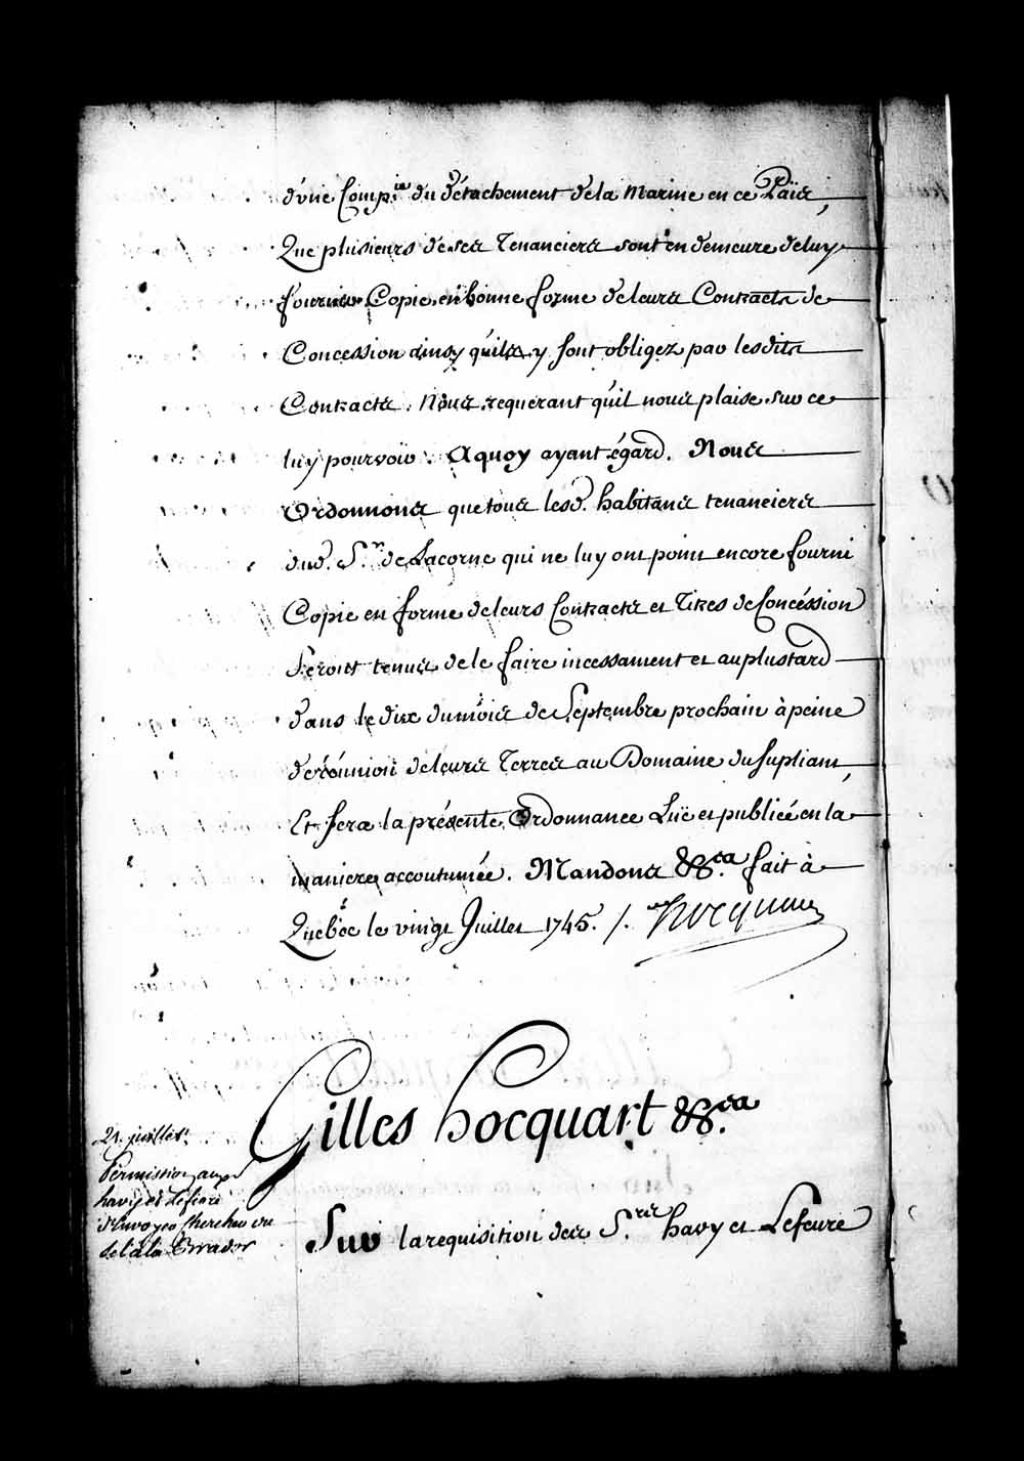 d'une Comp.ie du détachement de la Marine en ce Païs,
Que plusieurs de ses Tenanciers sont en demeure de luy
fournir Copie en bonne forme de leurs Contracts de
Concession ainsy qu'ils y sont obligez par lesdits
Contracts. Nous requerant qu'il nous plaise sur ce
luy pourvoir. Aquoy ayant égard. Nous
Ordonnons que tous lesd. habitans tenanciers
dud. S.r de Lacorne qui ne luy ont point encore fourni
Copie en forme de leurs Contracts et Titres de Concéssion
Seront tenus de le faire incessament et au plustard
dans le dix du mois de Septembre prochain à peine
de réünion de leurs Terres au Domaine du supliant,
Et sera la présente Ordonnance Lüe et publiée en la
maniere accoutumée. Mandons &c.a fait à
Quebéc le vingt Juillet 1745. /. Hocquart
Gilles hocquart &c.a
21. juillet
Permission aux Srs
havy et Lefevre
d'Envoyer chercher
de la la Brador
Sur la requisition des S.rs havy et Lefevre